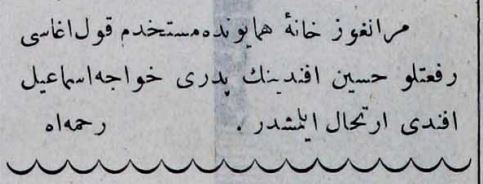 مرانغوز خانهٔ همایونده مستخدم قول اغاسی
رفعتلو حسین افندینك پدری خواجه اسماعیل
افندی ارتحال ایلمشدر . رحمه اه